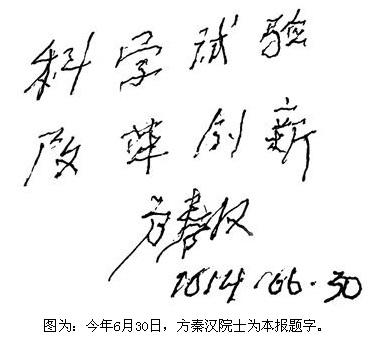 科学试验
改革创新
方秦汉
2014.06.30
图为：今年6月30日，方秦汉院士为本报题字。